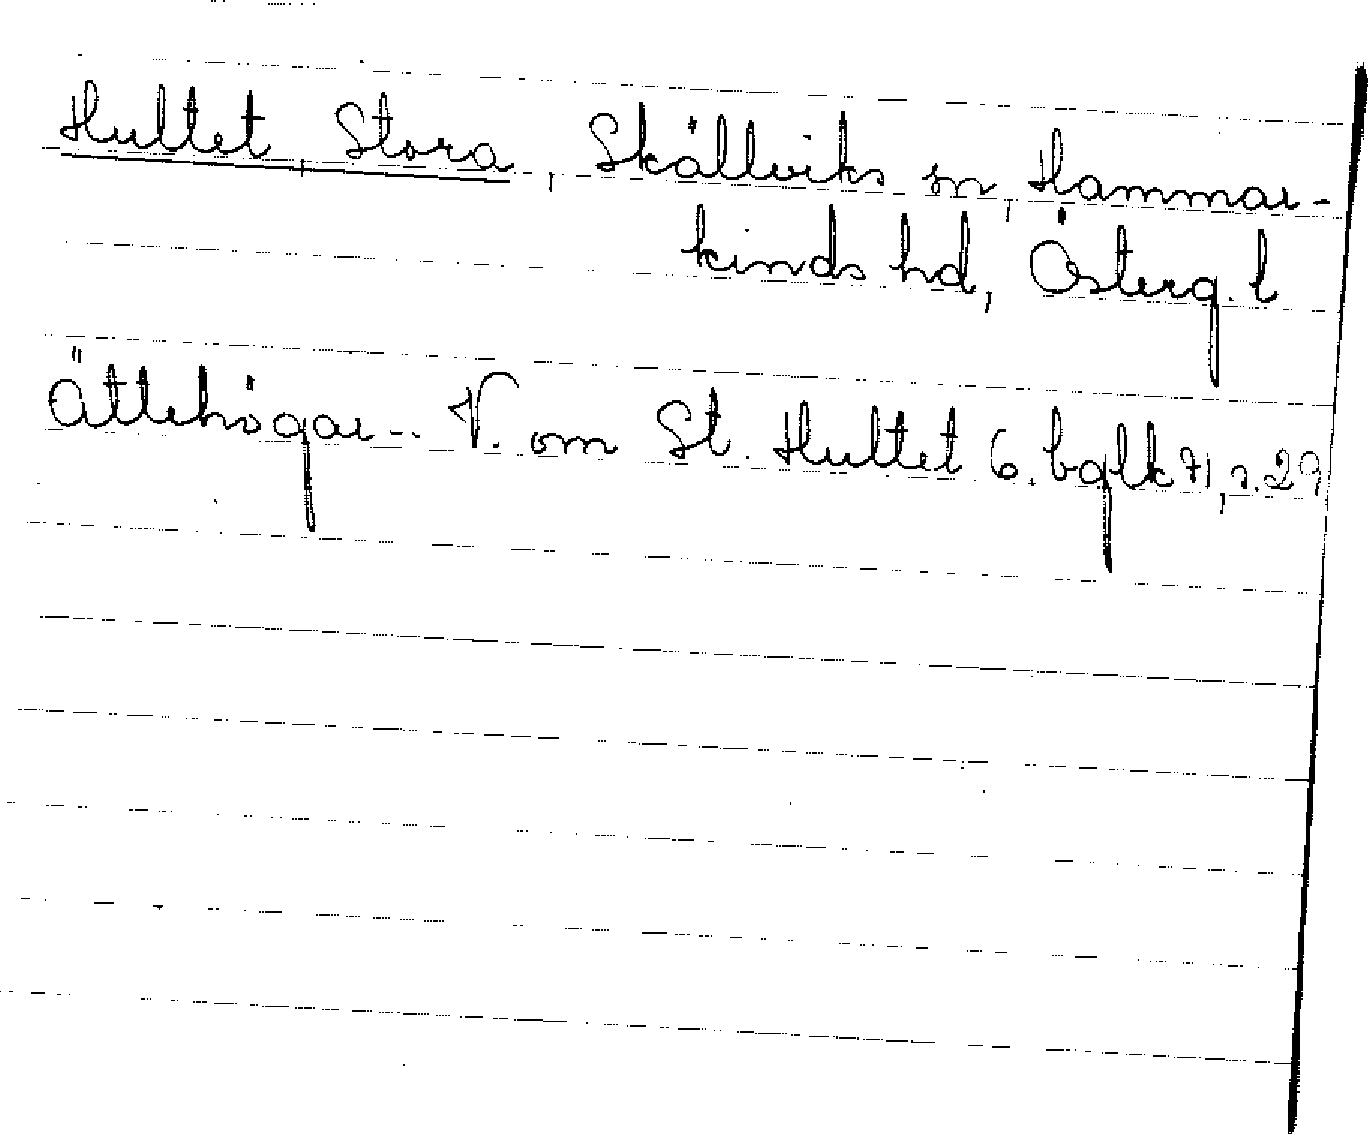 Hultet, Stora, Skällviks sn, Hammar-
kinds hd, Österg. l
Ättehögar.. V. om St. Hultet 6. bglk 71, s. 29